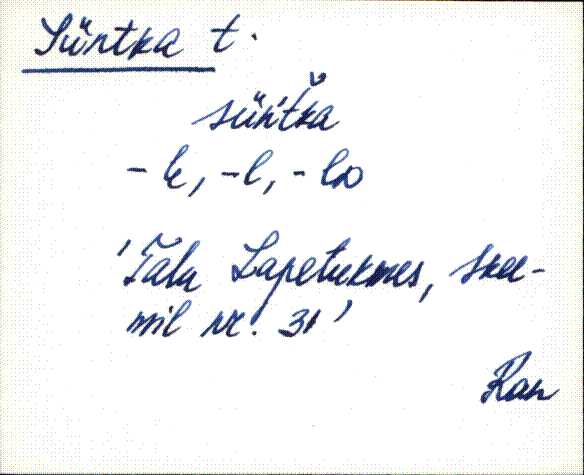 Süntka t.
sün'tka
-le, -l, -lo
'Talu Lapetukmes, skee-
mil nr. 31'
Ran